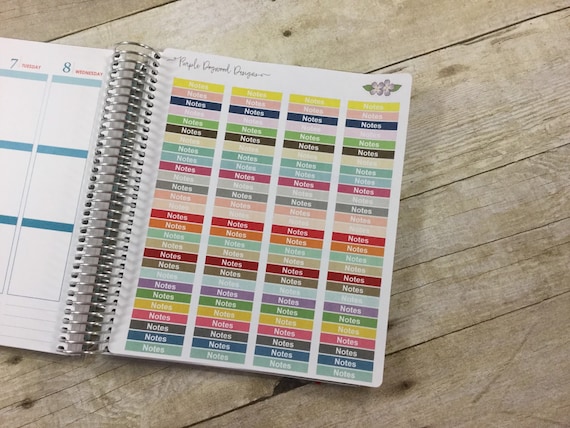 7 TUESDAY
8 WEDNESDAY
Purple Dogwood Designs
Notes Notes Notes Notes
Notes Notes Notes Notes
Notes Notes Notes Notes
Notes Notes Notes Notes
Notes Notes Notes Notes
Notes Notes Notes Notes
Notes Notes Notes Notes
Notes Notes Notes Notes
Notes Notes Notes Notes
Notes Notes Notes Notes
Notes Notes Notes Notes
Notes Notes Notes Notes
Notes Notes Notes Notes
Notes Notes Notes Notes
Notes Notes Notes Notes
Notes Notes Notes Notes
Notes Notes Notes Notes
Notes Notes Notes Notes
Notes Notes Notes Notes
Notes Notes Notes Notes
Notes Notes Notes Notes
Notes Notes Notes Notes
Notes Notes Notes Notes
Notes Notes Notes Notes
Notes Notes Notes Notes
Notes Notes Notes Notes
Notes Notes Notes Notes
Notes Notes Notes Notes
Notes Notes Notes Notes